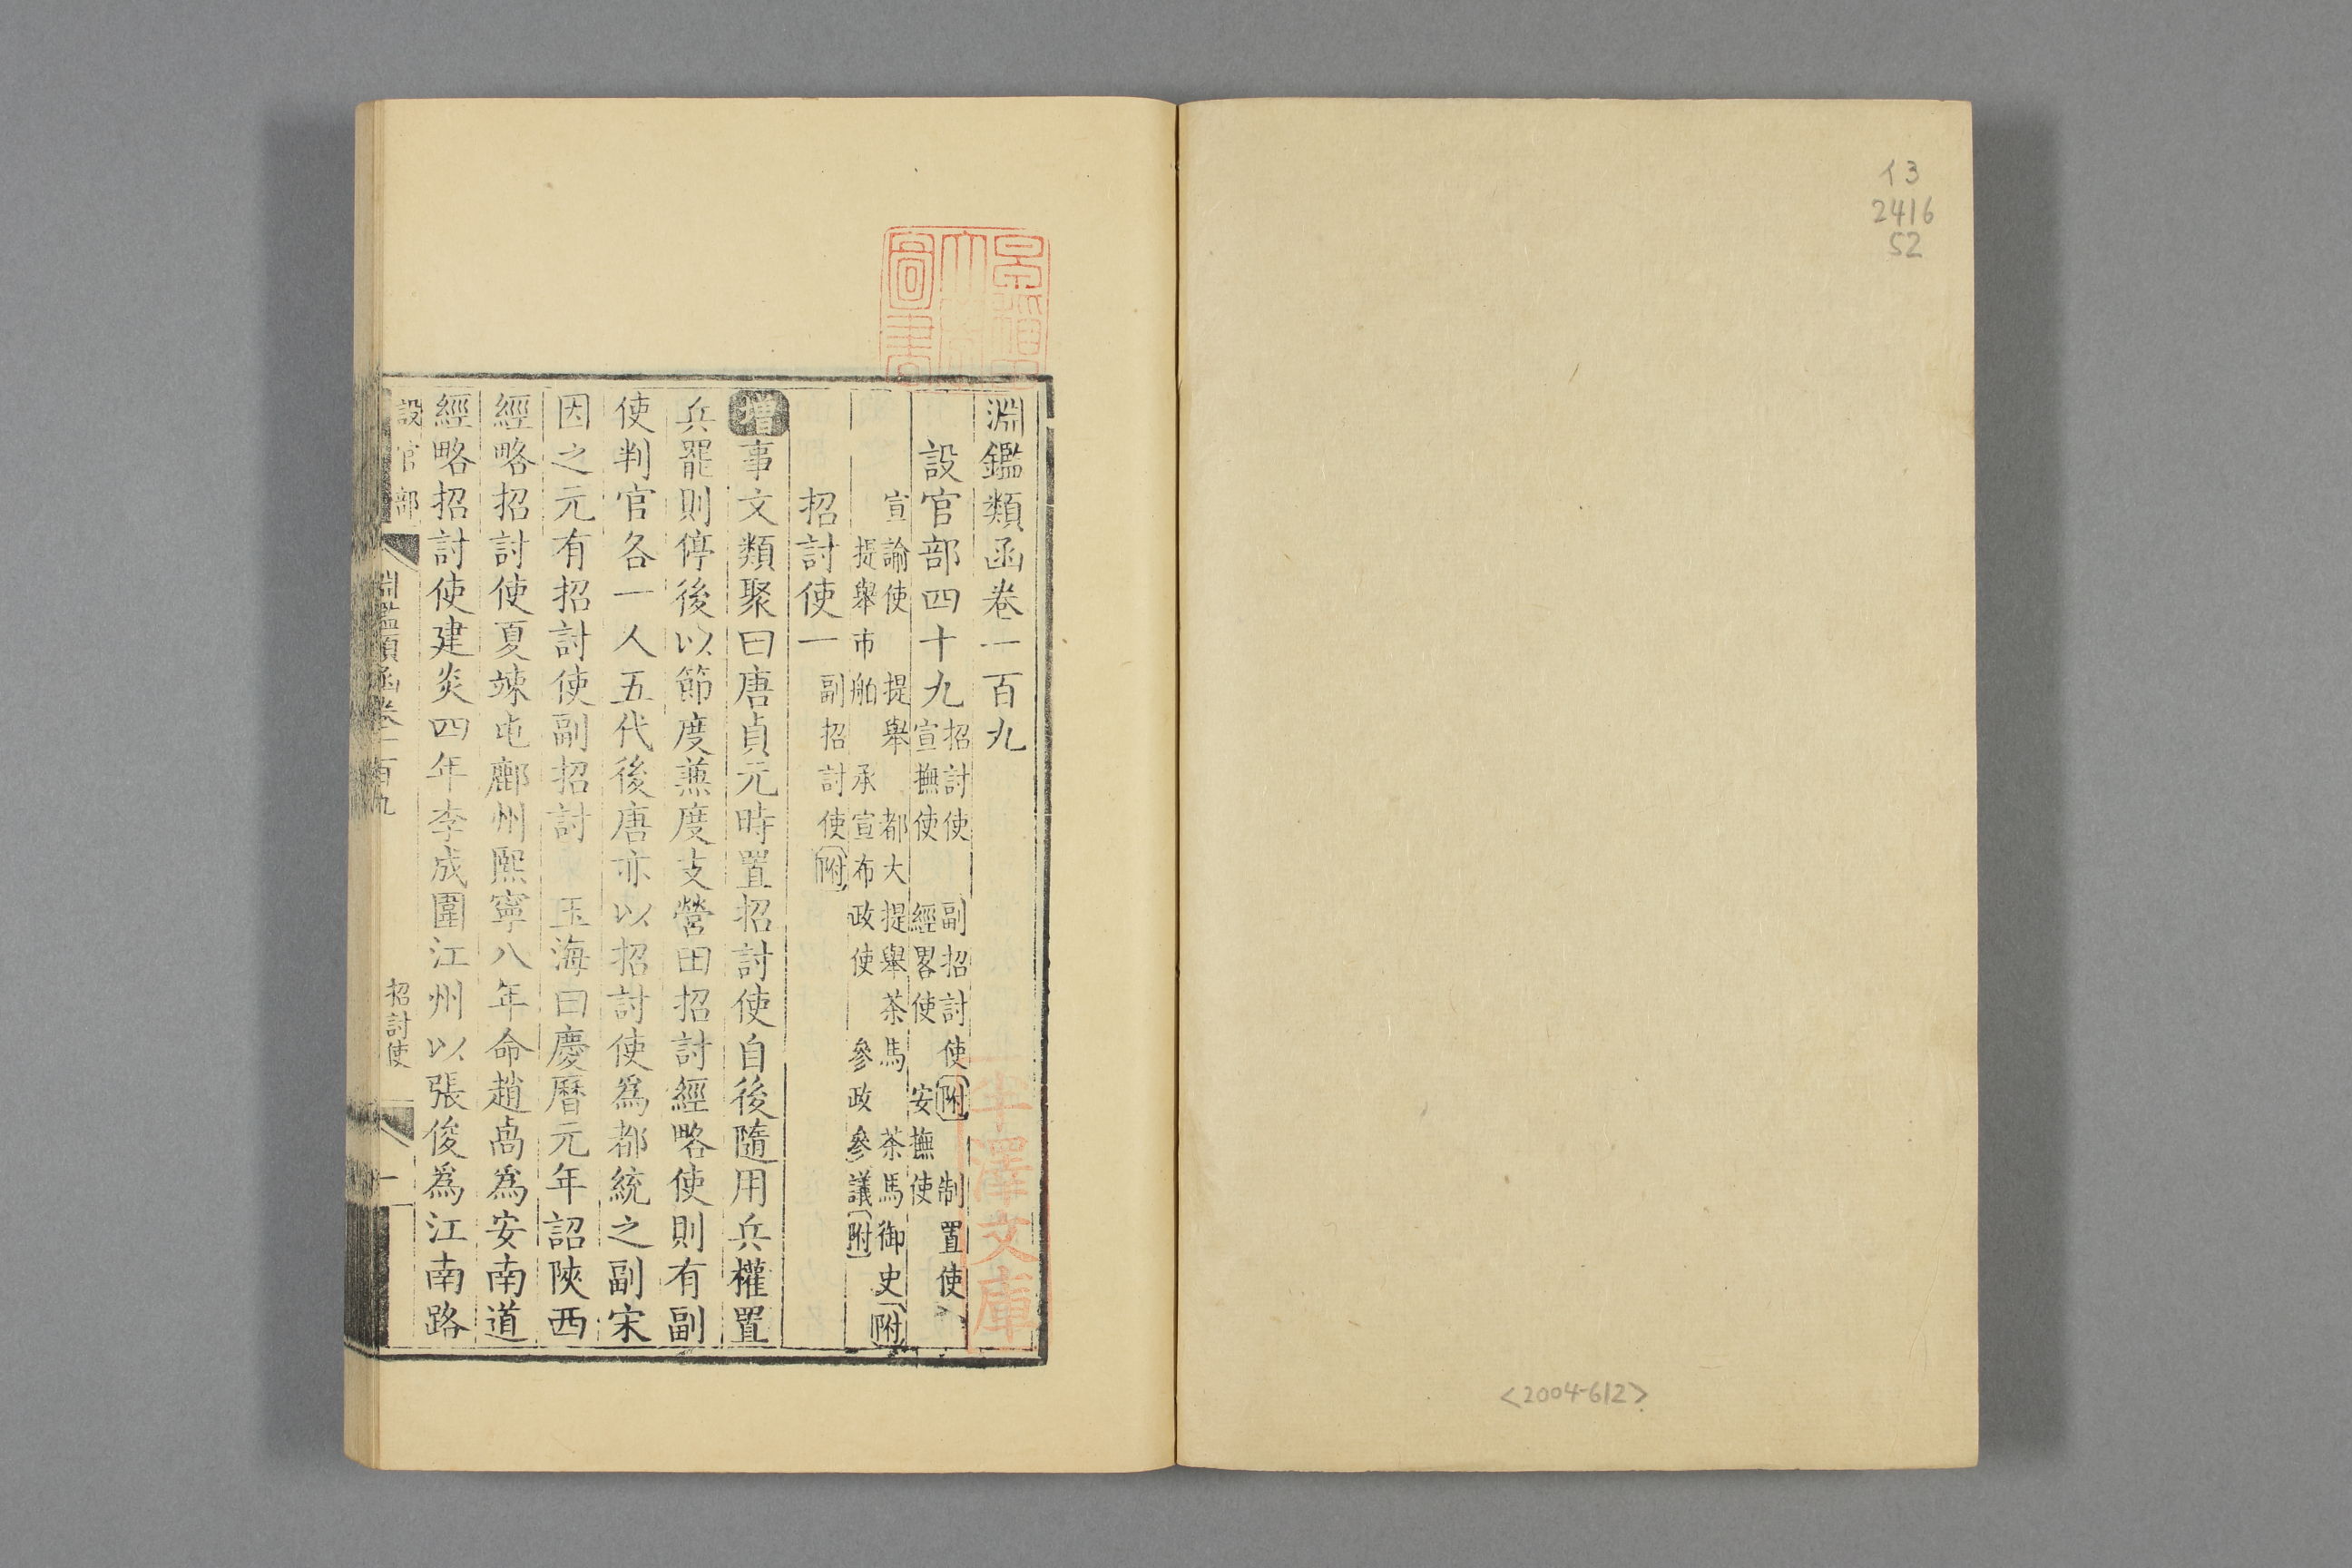 イ3
2416
52
<2004-612>
淵鑑類函卷一百九
設官部四十九
招討使 副招討使附 制置使
宣撫使 經畧使 安撫使
宣諭使 提舉 都大提舉茶馬 茶馬御史附
提舉市舶 承宣布政使 參政 參議附
招討使一 副招討使附
增事文類聚曰唐貞元時置招討使自後隨用兵權置
兵罷則停後以節度兼度支營田招討經略使則有副
使判官各一人五代後唐亦以招討使爲都統之副宋
因之元有招討使副招討 玉海曰慶曆元年詔陝西
經略招討使夏竦屯鄜州熙寧八年命趙卨爲安南道
經略招討使建炎四年李成圍江州以張俊爲江南路
設官部 淵鑑類函卷一百九 招討使 一
圖書
半澤文庫